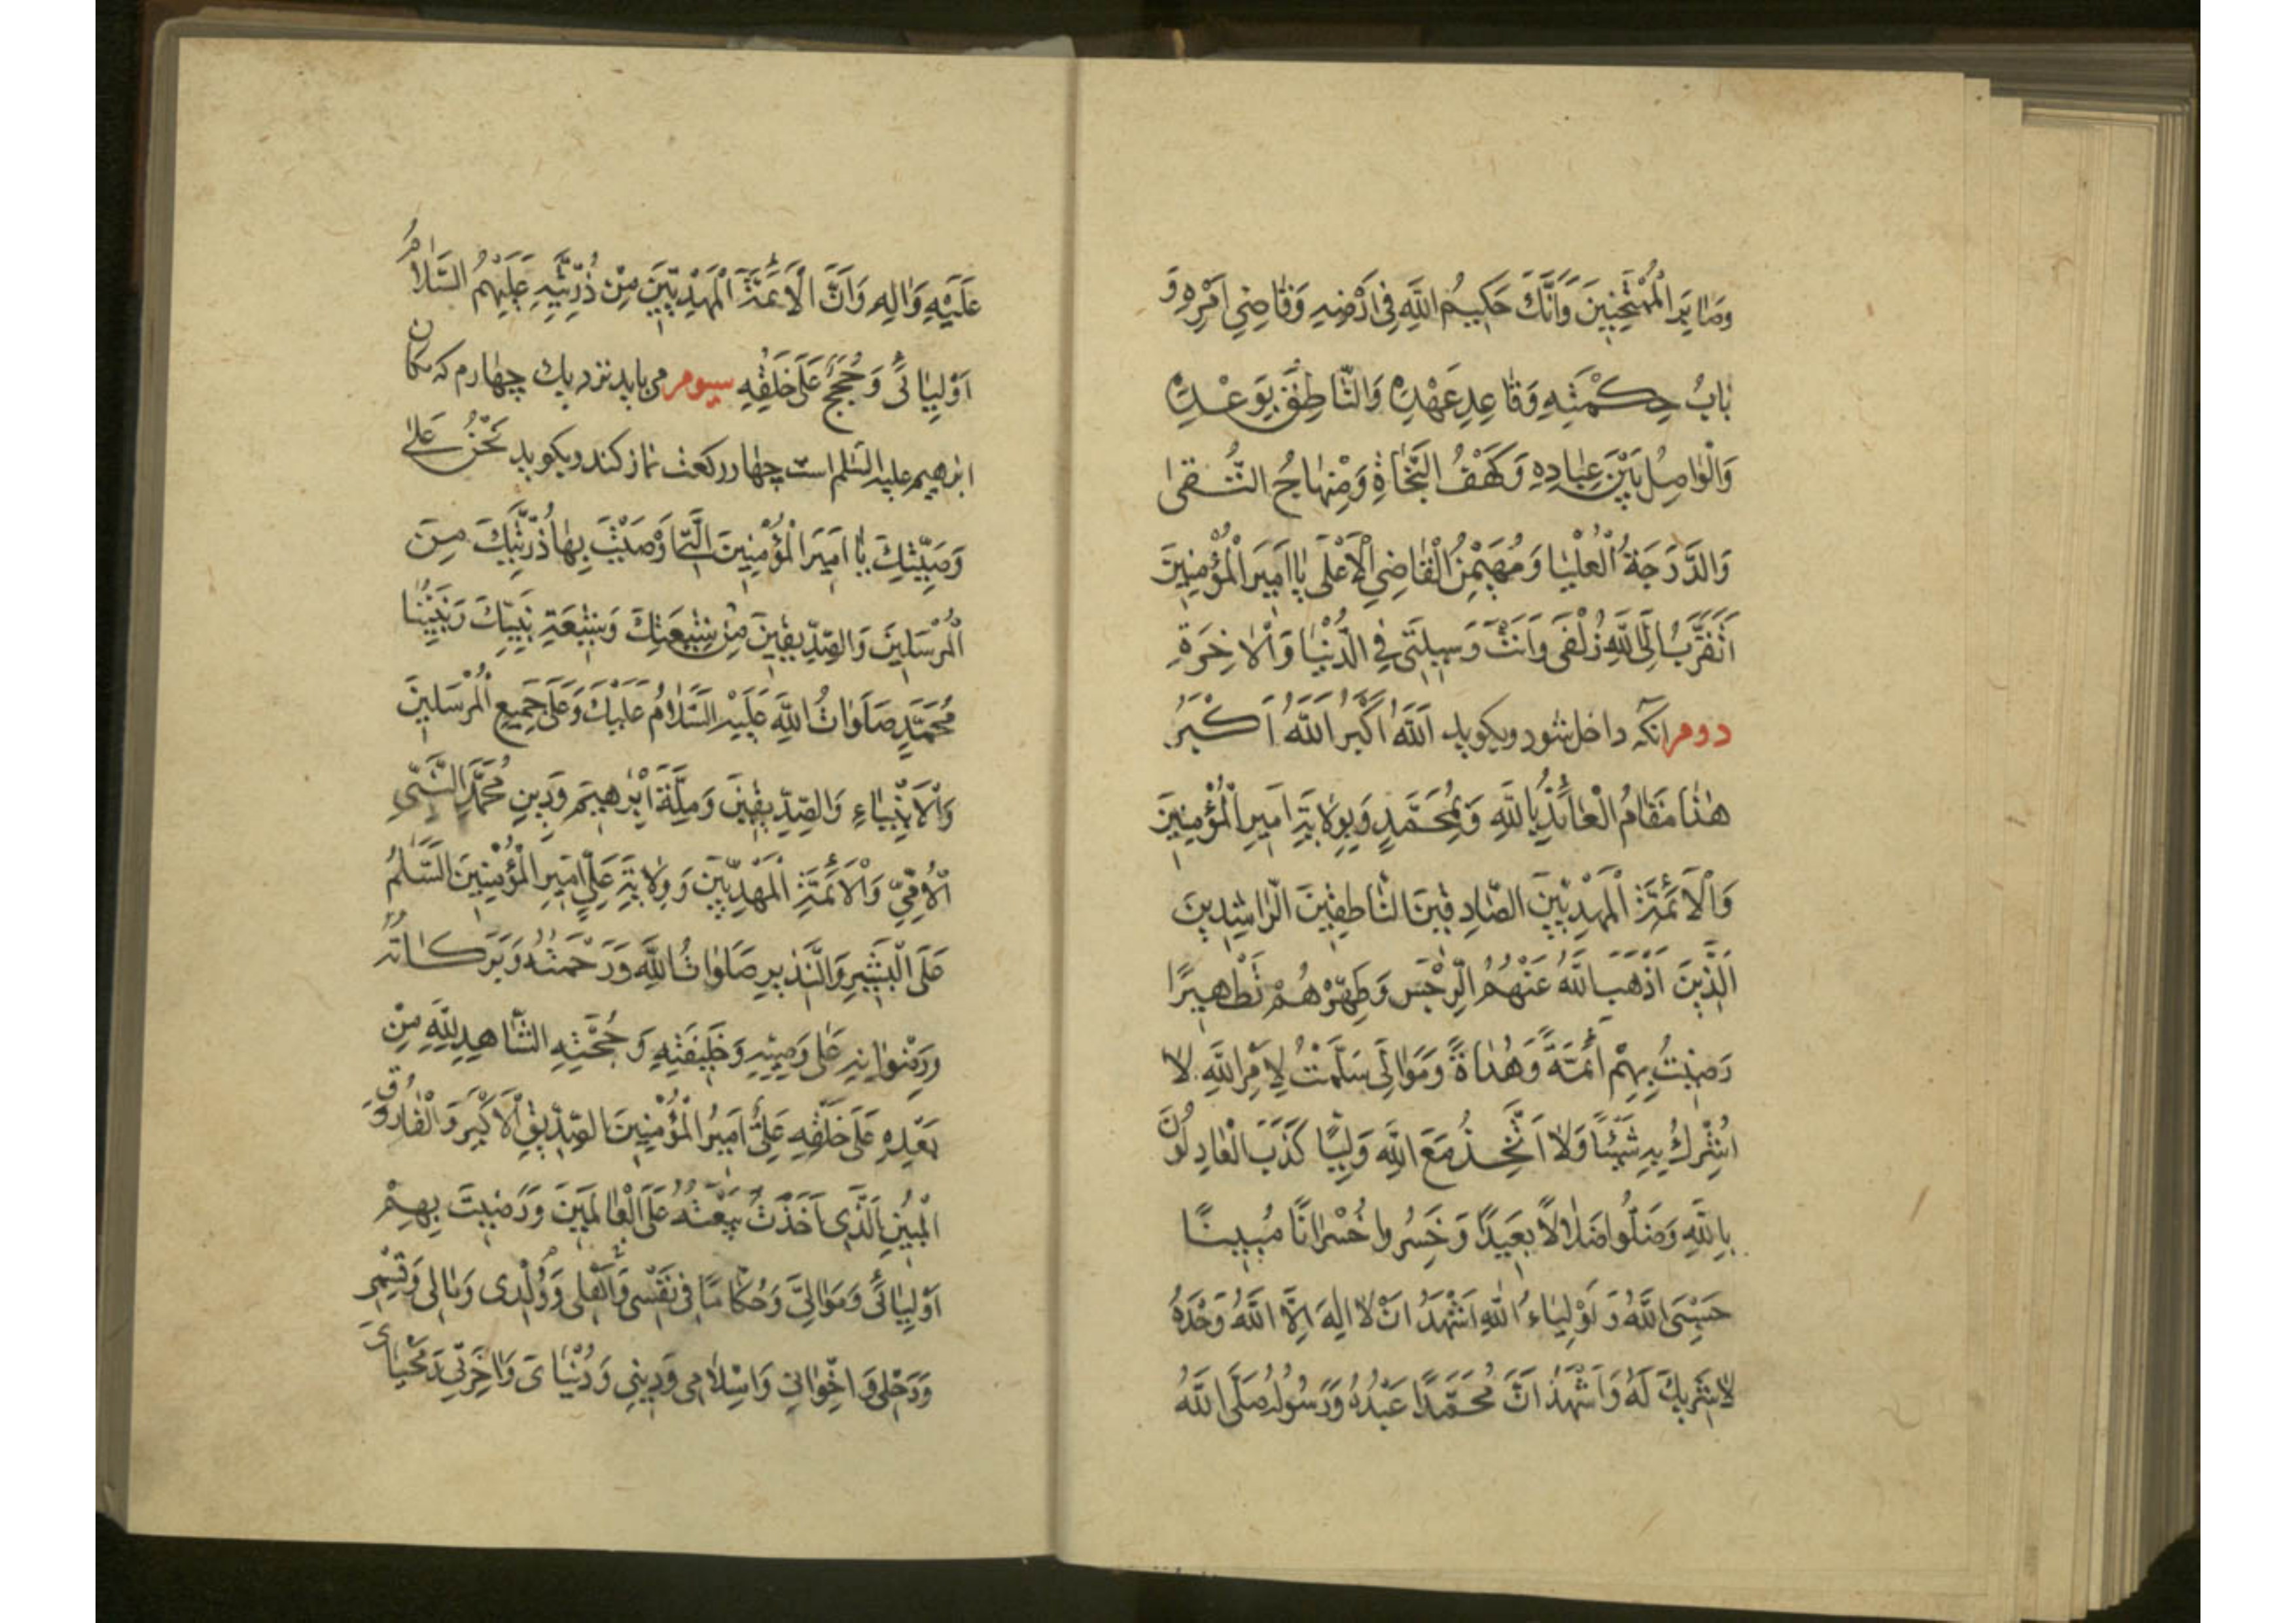 وَمٰا بَيْنَ الْمُمْتَحَنِينَ وَاَنَّكَ حَكِيمُ اللَّهِ فِي اَرْضِهِ وَقٰاضِي اَمْرِهِ وَ
بٰابُ حِكْمَتِهِ وَقٰاعِدِ عَهْدِهِ وَالنّٰاطِقُ بِوَعْدِهِ
وَالْوٰاصِلُ بَيْنَ عِبٰادِهِ وَكَهْفُ النَّجٰاةِ وَمِنْهٰاجُ التُّقىٰ
وَالدَّرَجَةُ الْعُلْيٰا وَمُهَيْمِنُ الْقٰاضِي الْاَعْلَى يٰا اَمِيرَ الْمُؤْمِنِينَ
اَتَقَرَّبُ اِلَى اللَّهِ زُلْفَى وَاَنْتَ وَسِيلَتِي فِي الدُّنْيٰا وَالْاٰخِرَةِ
دوم آنكه داخل شود وبكويد اَللَّهُ اَكْبَرُ اَللَّهُ اَكْبَرُ
هٰذٰا مَقٰامُ الْعٰائِذِ بِاللَّهِ وَبِمُحَمَّدٍ وَبِوِلٰايَةِ اَمِيرِ الْمُؤْمِنِينَ
وَالْاَئِمَّةِ الْمَهْدِيِّينَ الصّٰادِقِينَ النّٰاطِقِينَ الرّٰاشِدِينَ
الَّذِينَ اَذْهَبَ اللَّهُ عَنْهُمُ الرِّجْسَ وَطَهَّرَهُمْ تَطْهِيرًا
رَضِيتُ بِهِمْ اَئِمَّةً وَهُدٰاةً وَمَوٰالِيَ سَلَّمْتُ لِاَمْرِ اللَّهِ لٰا
اُشْرِكُ بِهِ شَيْئًا وَلٰا اَتَّخِذُ مَعَ اللَّهِ وَلِيًّا كَذَبَ الْعٰادِلُونَ
بِاللَّهِ وَضَلُّوا ضَلٰالًا بَعِيدًا وَخَسِرُوا خُسْرٰانًا مُبِينًا
حَسْبِيَ اللَّهُ وَ اَوْلِيٰاءُ اللَّهِ اَشْهَدُ اَنْ لٰا اِلٰهَ اِلَّا اللَّهُ وَحْدَهُ
لٰا شَرِيكَ لَهُ وَاَشْهَدُ اَنَّ مُحَمَّدًا عَبْدُهُ وَرَسُولُهُ صَلَّى اللَّهُ
عَلَيْهِ وَاٰلِهِ وَاَنَّ الْاَئِمَّةَ الْمَهْدِيِّينَ مِنْ ذُرِّيَّتِهِ عَلَيْهِمُ السَّلٰامُ
اَوْلِيٰائِي وَحُجَجٌ عَلَى خَلْقِهِ سيوم مى بايد نزديك چهارم كه مكان
ابرهيم عليه السلم است چهار ركعت نماز كند وبكويد نَحْنُ عَلىٰ
وَصِيَّتِكَ يٰا اَمِيرَ الْمُؤْمِنِينَ الَّتِي اَوْصَيْتَ بِهٰا ذُرِّيَّتَكَ مِنَ
الْمُرْسَلِينَ وَالصِّدِّيقِينَ مِنْ شِيعَتِكَ وَشِيعَةِ نَبِيِّكَ وَنَبِيِّنٰا
مُحَمَّدٍ صَلَوٰاتُ اللَّهِ عَلَيْهِ السَّلٰامُ عَلَيْكَ وَعَلَى جَمِيعِ الْمُرْسَلِينَ
وَالْاَنْبِيٰاءِ وَالصِّدِّيقِينَ وَمِلَّةِ اِبْرٰهِيمَ وَدِينِ مُحَمَّدٍ النَّبِيِّ
الْاُمِّيِّ وَالْاَئِمَّةِ الْمَهْدِيِّينَ وَوِلٰايَةِ عَلِيٍّ اَمِيرِ الْمُؤْمِنِينَ السَّلٰمُ
عَلَى الْبَشِيرِ وَالنَّذِيرِ صَلَوٰاتُ اللَّهِ وَرَحْمَتُهُ وَبَرَكٰاتُهُ
وَرِضْوٰانِهِ عَلىٰ وَصِيِّهِ وَخَلِيفَتِهِ وَحُجَّتِهِ الشّٰاهِدِ لِلَّهِ مِنْ
بَعْدِهِ عَلَى خَلْقِهِ عَلِيٍّ اَمِيرِ الْمُؤْمِنِينَ الصِّدِّيقِ الْاَكْبَرِ وَالْفٰارُوقِ
الْمُبِينِ الَّذِي اَخَذْتَ بَيْعَتَهُ عَلَى الْعٰالَمِينَ وَرَضِيتُ بِهِمْ
اَوْلِيٰائِي وَمَوٰالِيَّ وَحُكّٰامًا فِي نَفْسِي وَاَهْلِي وَوُلْدِي وَمٰالِي وَقِسْمِي
وَرَحْلِي وَاِخْوٰانِي وَاِسْلٰامِي وَدِينِي وَدُنْيٰايَ وَاٰخِرَتِي وَمَحْيٰايَ